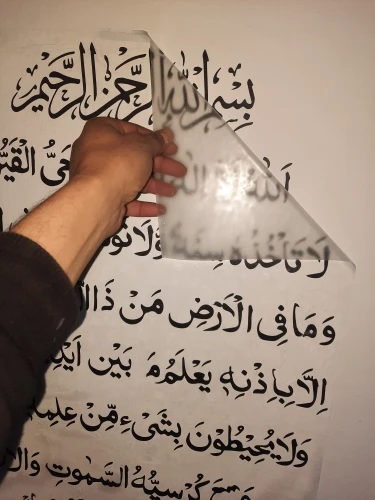 بِسْمِ اللّٰهِ الرَّحْمٰنِ الرَّحِيْمِ
اَللّٰهُ حَىُّ الْقَيُّ
لَا تَاْخُذُهٗ سِنَةٌ وَّلَا نَوْ
وَمَا فِى الْاَرْضِ مَنْ ذَا
اِلَّا بِاِذْنِهٖ يَعْلَمُ مَ بَيْنَ اَيْدِ
وَلَا يُحِيْطُوْنَ بِشَىْءٍ مِّنْ عِلْمِهٖ
وَسِعَ كُرْسِيُّهُ السَّمٰوٰتِ وَالْا